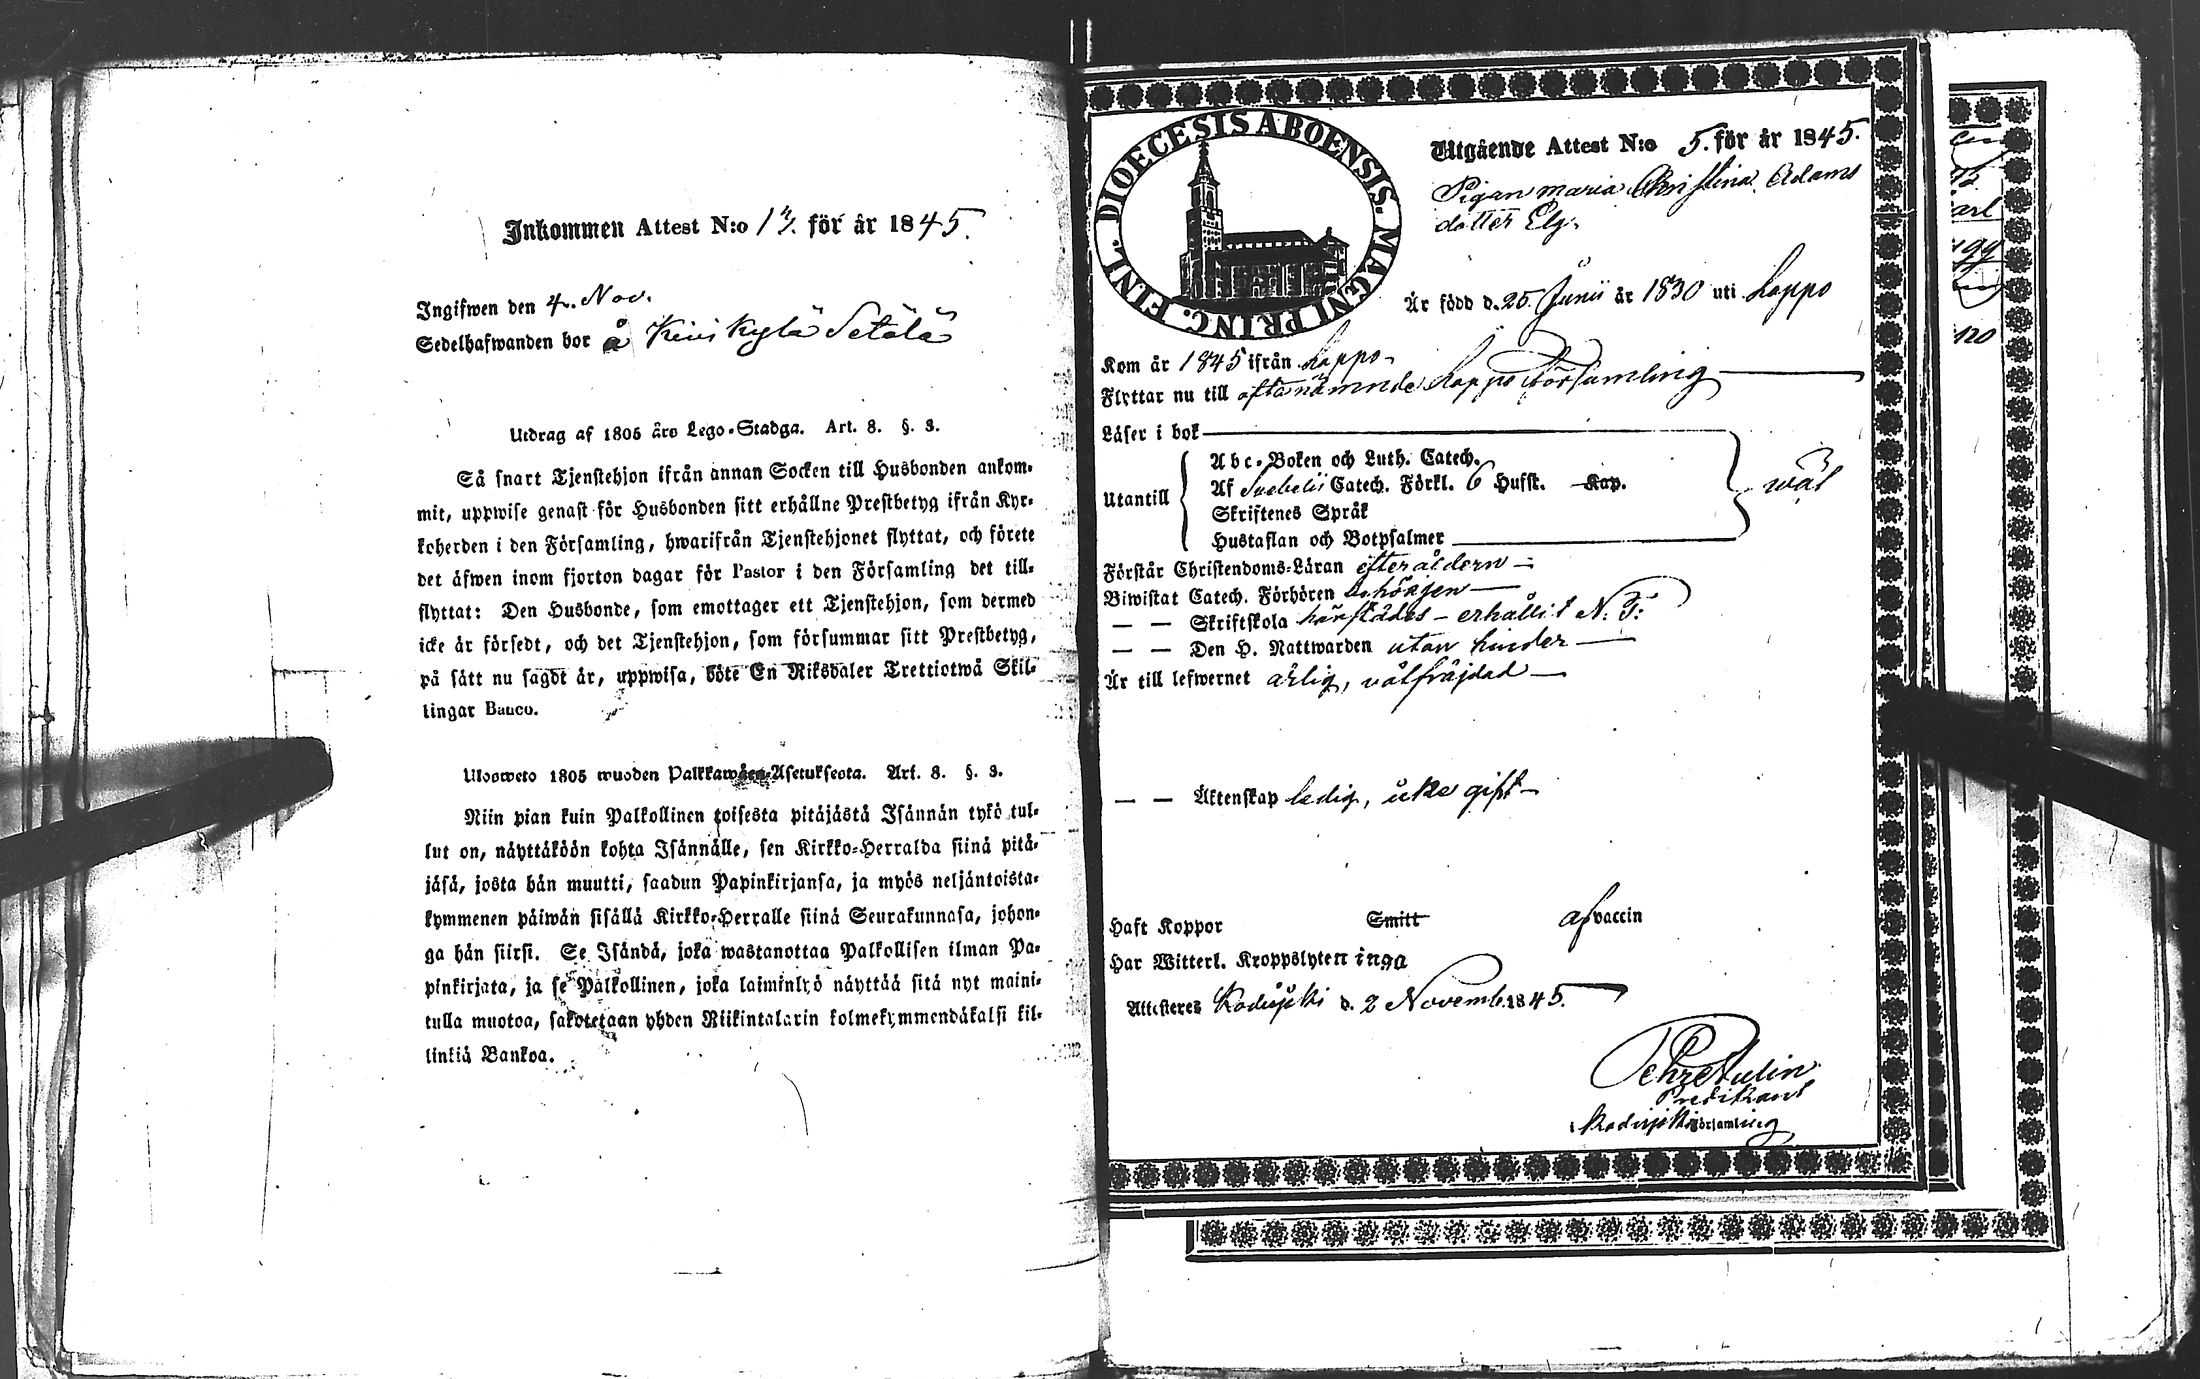 Inkommen Attest N:o 13. för år 1845.
Ingifwen den 4. Nov.
Sedelhafwanden bor å Kiui kylä Setälä
Utdrag af 1805 års Lego-Stadga. Art. 8. §. 3.
Så snart Tjenstehjon ifrån annan Socken till Husbonden ankom-
mit, uppwise genast för Husbonden sitt erhållne Prestbetyg ifrån Kyr-
koherden i den Församling, hwarifrån Tjenstehjonet flyttat, och förete
det äfwen inom fjorton dagar för Pastor i den Församling det till-
flyttat: Den Husbonde, som emottager ett Tjenstehjon, som dermed
icke är försedt, och det Tjenstehjon, som försummar sitt Prestbetyg,
på sätt nu sagdt är, uppwisa, böte En Riksdaler Trettiotwå Skil-
lingar Banco.
Ulosweto 1805 wuoden Palkkawäen-Asetuksesta. Art. 8. §. 3.
Niin pian kuin Palkollinen toisesta pitäjästä Isännän tykö tul-
lut on, näyttäköön kohta Isännälle, sen Kirkko-Herralda siinä pitä-
jäsä, josta hän muutti, saadun Papinkirjansa, ja myös neljäntoista-
kymmenen päiwän sisällä Kirkko-Herralle siinä Seurakunnasa, johon-
ga hän siirsi. Se Isändä, joka wastanottaa Palkollisen ilman Pa-
pinkirjata, ja se Palkollinen, joka laiminlyö näyttää sitä nyt maini-
tulla muotoa, sakotetaan yhden Riikintalarin kolmekymmendäkaksi kil-
linkiä Bankoa.
DIOECESIS ABOENSIS. MAGNI PRINC. FINL.
Utgående Attest N:o 5. för år 1845.
Pigan maria Christina Adams
dotter Elg.
Är född d. 25 Junii år 1830 uti Lappo
Kom år 1845 ifrån Lappo
Flyttar nu till oftanämnde Lappo Församling
Läser i bok
Abc-Boken och Luth. Catech.
Utantill Af Svebelii Catech. Förkl. 6 Hufst. Kap. wäl
Skriftenes Språk
Hustaflan och Botpsalmer
Förstår Christendoms-Läran efter åldern
Biwistat Catech. Förhören behörigen
— — Skriftskola härstädes – erhållit N. T.
— — Den H. Nattwarden utan hinder
Är till lefwernet ärlig, välfräjdad
— — Äktenskap ledig, icke gift
Haft Koppor Smitt af vaccin
Har Witterl. Kroppslyten inga
Attesteres Kodisjoki d. 2 Novemb. 1845.
Predikant
i Kodisjoki Församling